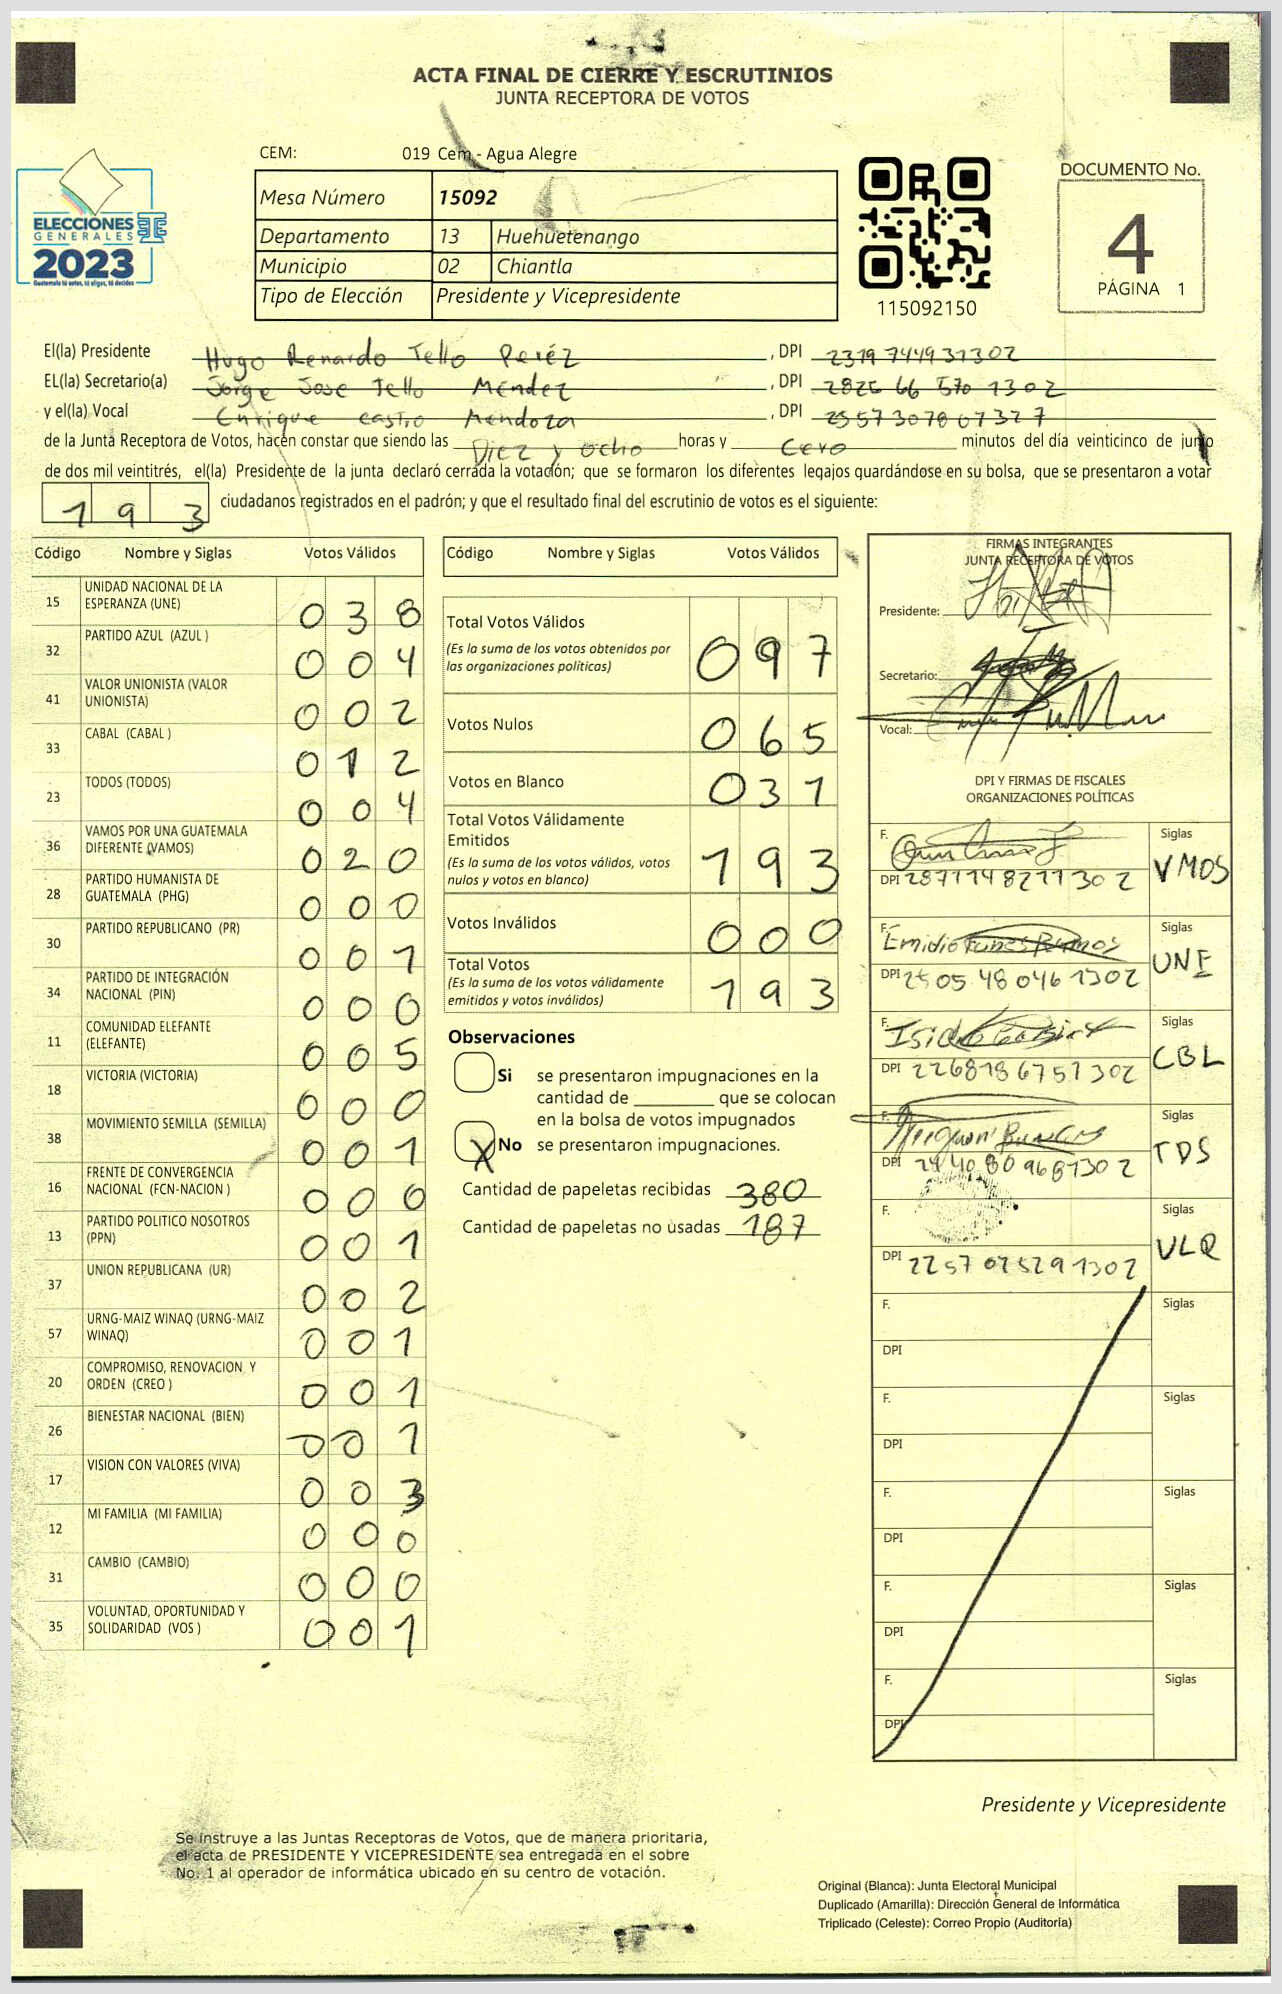 ACTA FINAL DE CIERRE Y ESCRUTINIOS
JUNTA RECEPTORA DE VOTOS
CEM: 019 Cem - Agua Alegre
ELECCIONES
GENERALES
2023
Guatemala tú votas, tú eliges, tú decides
Mesa Número 15092
Departamento 13 Huehuetenango
Municipio 02 Chiantla
Tipo de Elección Presidente y Vicepresidente
115092150
DOCUMENTO No.
4
PÁGINA 1
El(la) Presidente Hugo Renardo Tello Peréz , DPI 2319 744931302
EL(la) Secretario(a) Jorge Jose Tello Méndez , DPI
y el(la) Vocal Enrique Castro Mendoza , DPI
de la Junta Receptora de Votos, hacen constar que siendo las Diez y ocho horas y Cero minutos del día veinticinco de junio
de dos mil veintitrés, el(la) Presidente de la junta declaró cerrada la votación; que se formaron los diferentes legajos guardándose en su bolsa, que se presentaron a votar
193 ciudadanos registrados en el padrón; y que el resultado final del escrutinio de votos es el siguiente:
Código Nombre y Siglas Votos Válidos
15 UNIDAD NACIONAL DE LA ESPERANZA (UNE) 038
32 PARTIDO AZUL (AZUL ) 004
41 VALOR UNIONISTA (VALOR UNIONISTA) 002
33 CABAL (CABAL ) 012
23 TODOS (TODOS) 004
36 VAMOS POR UNA GUATEMALA DIFERENTE (VAMOS) 020
28 PARTIDO HUMANISTA DE GUATEMALA (PHG) 000
30 PARTIDO REPUBLICANO (PR) 001
34 PARTIDO DE INTEGRACIÓN NACIONAL (PIN) 000
11 COMUNIDAD ELEFANTE (ELEFANTE) 005
18 VICTORIA (VICTORIA) 000
38 MOVIMIENTO SEMILLA (SEMILLA) 001
16 FRENTE DE CONVERGENCIA NACIONAL (FCN-NACION ) 000
13 PARTIDO POLITICO NOSOTROS (PPN) 001
37 UNION REPUBLICANA (UR) 002
57 URNG-MAIZ WINAQ (URNG-MAIZ WINAQ) 001
20 COMPROMISO, RENOVACION Y ORDEN (CREO ) 001
26 BIENESTAR NACIONAL (BIEN) 001
17 VISION CON VALORES (VIVA) 003
12 MI FAMILIA (MI FAMILIA) 000
31 CAMBIO (CAMBIO) 000
35 VOLUNTAD, OPORTUNIDAD Y SOLIDARIDAD (VOS ) 001
Código Nombre y Siglas Votos Válidos
Total Votos Válidos 097
(Es la suma de los votos obtenidos por
las organizaciones políticas)
Votos Nulos 065
Votos en Blanco 031
Total Votos Válidamente
Emitidos 193
(Es la suma de los votos válidos, votos
nulos y votos en blanco)
Votos Inválidos 000
Total Votos 193
(Es la suma de los votos válidamente
emitidos y votos inválidos)
Observaciones
Si se presentaron impugnaciones en la
cantidad de ________ que se colocan
en la bolsa de votos impugnados
X No se presentaron impugnaciones.
Cantidad de papeletas recibidas 380
Cantidad de papeletas no usadas 187
FIRMAS INTEGRANTES
JUNTA RECEPTORA DE VOTOS
Presidente:
Secretario:
Vocal:
DPI Y FIRMAS DE FISCALES
ORGANIZACIONES POLÍTICAS
F. Siglas
DPI VMOS
F. Emidio Siglas
DPI 2505 48046 1302 UNE
F. Isidro Siglas
DPI 2268186751302 CBL
F. Siglas
DPI TDS
F. Siglas
DPI 2257025291302 VLR
F. Siglas
DPI
F. Siglas
DPI
F. Siglas
DPI
F. Siglas
DPI
F. Siglas
DPI
Presidente y Vicepresidente
Se instruye a las Juntas Receptoras de Votos, que de manera prioritaria,
el acta de PRESIDENTE Y VICEPRESIDENTE sea entregada en el sobre
No. 1 al operador de informática ubicado en su centro de votación.
Original (Blanca): Junta Electoral Municipal
Duplicado (Amarilla): Dirección General de Informática
Triplicado (Celeste): Correo Propio (Auditoría)